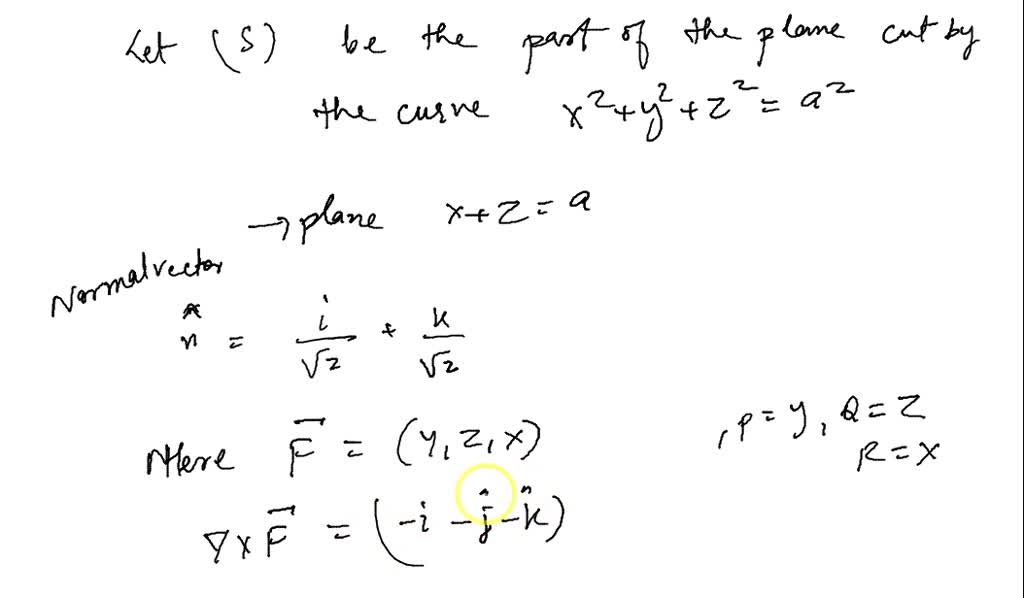 Let (S) be the part of the plane cut by
the curve x²+y²+z²=a²
→ plane x+z=a
Normal vector
n̂ = i/√2 + k/√2
Here F⃗ = (y,z,x) , P=y, Q=z
R=x
∇×F⃗ = (-i -ĵ-k̂)